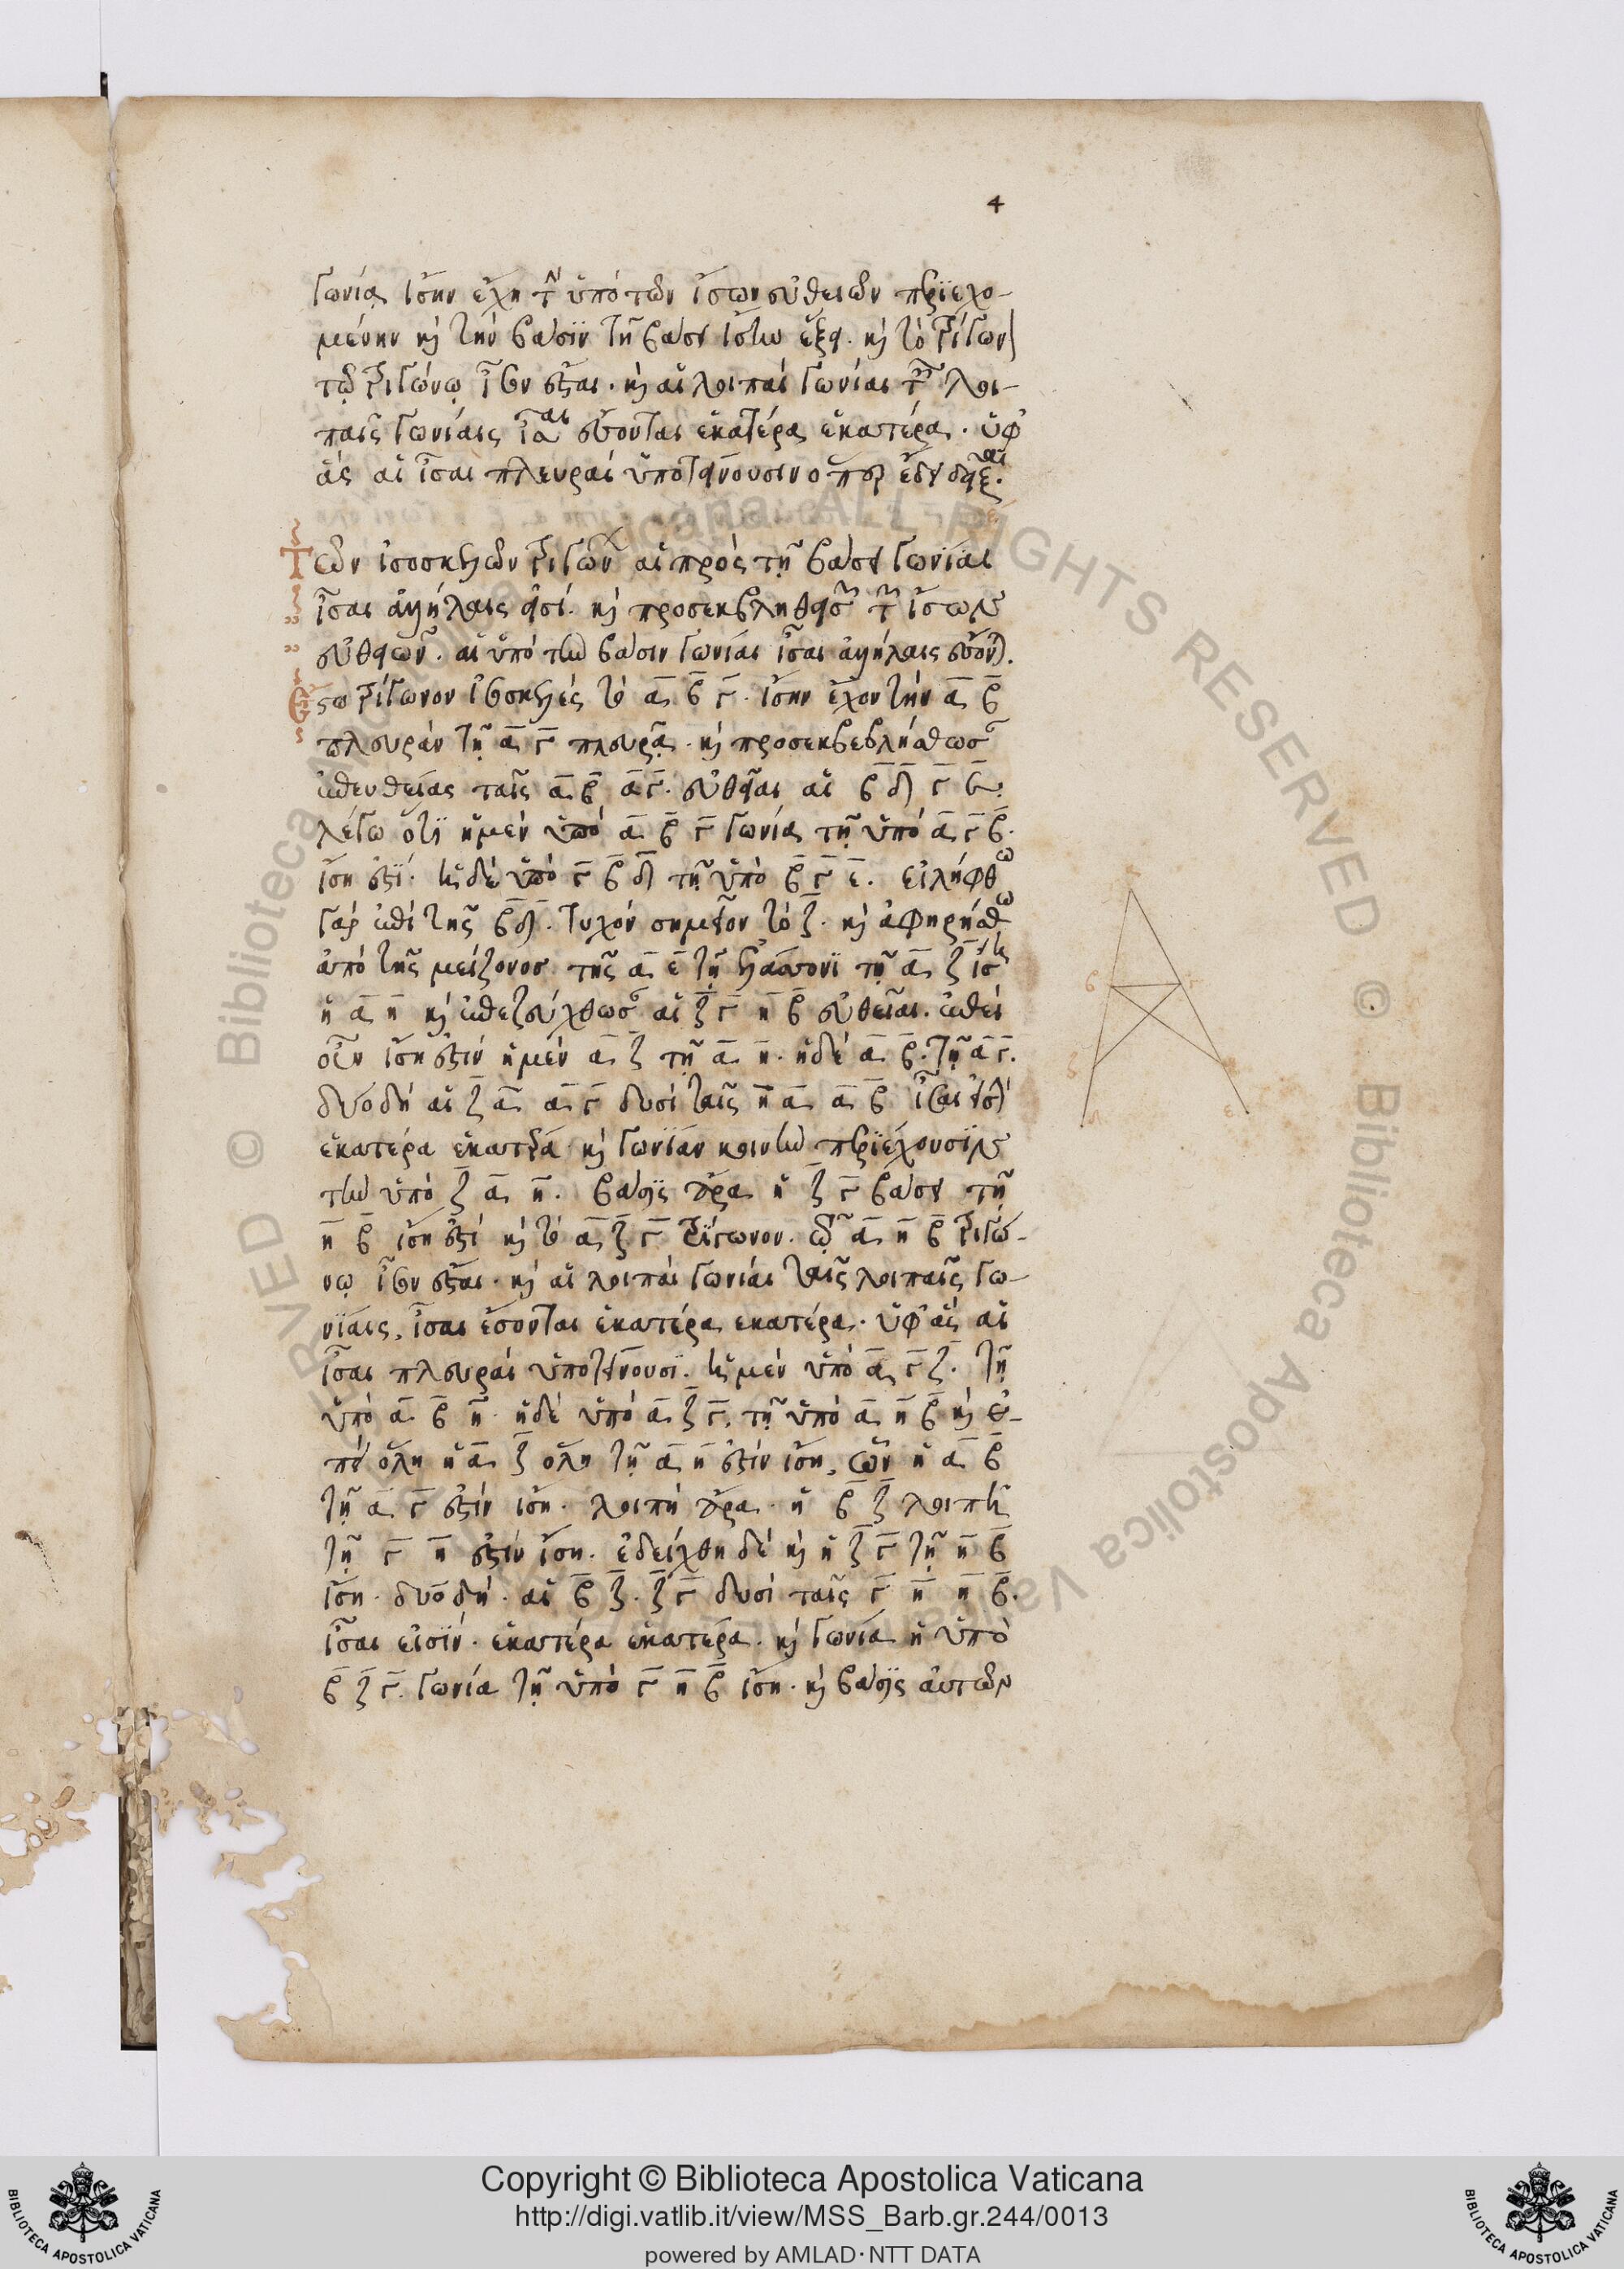 4
γωνίαν ἴσην ἔχη τὴν ὑπὸ τῶν ἴσων εὐθειῶν περϊεχο-
μένην καὶ τὴν βάσϊν τῆ βάσει ἴσην ἕξει. καὶ τὸ τρίγωνον
τῶ τριγώνω ἴσον ἔσται. καὶ αἱ λοιπαὶ γωνίαι ταῖς λοι-
παῖς γωνίαις ἴσαι ἔσονται ἑκατέρα ἑκατέρα. ὑφ'
ἃς αἱ ἴσαι πλευραὶ ὑποτείνουσιν ὅπερ ἔδει δεῖξαι.
Τῶν ἰσοσκελῶν τριγώνων αἱ πρὸς τῆ βάσει γωνίαι
ἴσαι ἀλλήλαις εἰσί. καὶ προσεκβληθεισῶν τῶν ἴσων
εὐθειῶν. αἱ ὑπὸ τὴν βάσιν γωνίαι ἴσαι ἀλλήλαις ἔσονται.
Ἔστω τρίγωνον ἰσοσκελὲς τὸ α β γ. ἴσην ἔχον τὴν α β
πλευρὰν τῆ α γ πλευρᾶ. καὶ προσεκβεβλήσθωσαν
ἐπευθείας ταῖς α β α γ. εὐθεῖαι αἱ β δ γ ε.
λέγω ὅτϊ ἡ μὲν ὑπὸ α β γ γωνία τῆ ὑπὸ α γ β.
ἴση ἐστί. ἡ δὲ ὑπὸ γ β δ τῆ ὑπὸ β γ ε. εἰλήφθω
γὰρ ἐπὶ τῆς β δ. τυχὸν σημεῖον τὸ ζ. καὶ ἀφηρήσθω
ἀπὸ τῆς μείζονος τῆς α ε τῆ ἐλάσσονϊ τῆ α ζ ἴση
ἡ α η καὶ ἐπεζεύχθωσαν αἱ ζ γ η β εὐθεῖαι. ἐπεὶ
οὖν ἴση ἐστὶν ἡ μὲν α ζ τῆ α η. ἡ δὲ α β. τῆ α γ.
δύο δὴ αἱ ζ α α γ δυσὶ ταῖς η α α β ἴσαι εἰσὶ
ἑκατέρα ἑκατέρα. καὶ γωνϊαν κοινὴν περϊέχουσϊν
τὴν ὑπὸ ζ α η. βάσϊς ἄρα ἡ ζ γ βάσει τῆ
η β ἴση ἐστὶ καὶ τὸ α ζ γ τρϊγωνον. τῶ α η β τριγώ-
νω ἴσον ἔσται. καὶ αἱ λοιπαὶ γωνίαι ταῖς λοιπαῖς γω-
νίαις, ἴσαι ἔσονται ἑκατέρα ἑκατέρα. ὑφ' ἃς αἱ
ἴσαι πλευραὶ ὑποτείνουσϊ. ἡ μὲν ὑπὸ α γ ζ. τῆ
ὑπὸ α β η. ἡ δὲ ὑπὸ α ζ γ. τῆ ὑπὸ α η β καὶ ἐ-
πεὶ ὅλη ἡ α ζ ὅλη τῆ α η ἐστὶν ἴση, ὧν ἡ α β
τῆ α γ ἐστὶν ἴση. λοιπὴ ἄρα. ἡ β ζ λοιπῆ
τῆ γ η ἐστὶν ἴση. ἐδείχθη δὲ καὶ ἡ ζ γ τῆ η β
ἴση. δύο δὴ. αἱ β ζ. ζ γ δυσὶ ταῖς γ η η β.
ἴσαι εἰσϊν. ἑκατέρα ἑκατέρα. καὶ γωνία ἡ ὑπὸ
β ζ γ. γωνία τῆ ὑπὸ γ η β ἴση. καὶ βάσϊς αὐτῶν
Copyright © Biblioteca Apostolica Vaticana
http://digi.vatlib.it/view/MSS_Barb.gr.244/0013
powered by AMLAD·NTT DATA